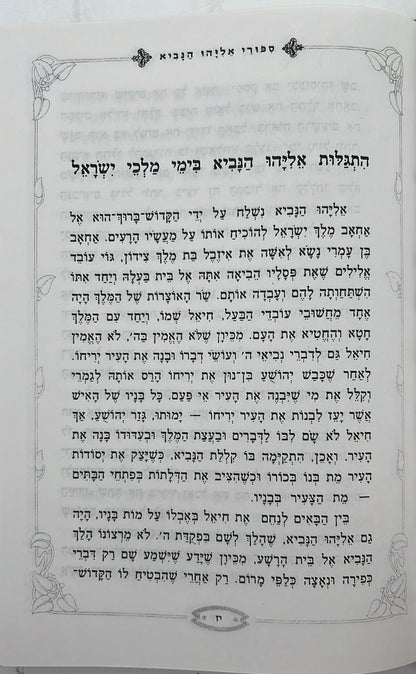 סִפּוּרֵי אֵלִיָּהוּ הַנָּבִיא
הִתְגַּלּוּת אֵלִיָּהוּ הַנָּבִיא בִּימֵי מַלְכֵי יִשְׂרָאֵל
אֵלִיָּהוּ הַנָּבִיא נִשְׁלַח עַל יְדֵי הַקָּדוֹשׁ־בָּרוּךְ־הוּא אֶל
אַחְאָב מֶלֶךְ יִשְׂרָאֵל לְהוֹכִיחַ אוֹתוֹ עַל מַעֲשָׂיו הָרָעִים. אַחְאָב
בֶּן עָמְרִי נָשָׂא לְאִשָּׁה אֶת אִיזֶבֶל בַּת מֶלֶךְ צִידוֹן, גּוֹי עוֹבֵד
אֱלִילִים שֶׁאֶת פְּסָלָיו הֵבִיאָה אִתָּהּ אֶל בֵּית בַּעְלָהּ וְיַחַד אִתּוֹ
הִשְׁתַּחַוְתָה לָהֶם וְעָבְדָה אוֹתָם. שַׂר הָאוֹצָרוֹת שֶׁל הַמֶּלֶךְ הָיָה
אֶחָד מֵחֲשׁוּבֵי עוֹבְדֵי הַבַּעַל, חִיאֵל שְׁמוֹ, וְיַחַד עִם הַמֶּלֶךְ
חָטָא וְהֶחֱטִיא אֶת הָעָם. מִכֵּיוָן שֶׁלֹּא הֶאֱמִין בַּה׳, לֹא הֶאֱמִין
חִיאֵל גַּם לְדִבְרֵי נְבִיאֵי ה׳ וְעוֹשֵׂי דְבָרוֹ וּבָנָה אֶת הָעִיר יְרִיחוֹ.
לְאַחַר שֶׁכָּבַשׁ יְהוֹשֻׁעַ בִּן־נוּן אֶת יְרִיחוֹ הָרַס אוֹתָהּ לְגַמְרֵי
וְקִלֵּל אֶת מִי שֶׁיִּבְנֶה אֶת הָעִיר אֵי פַּעַם. כָּל בָּנָיו שֶׁל הָאִישׁ
אֲשֶׁר יָעֵז לִבְנוֹת אֶת הָעִיר יְרִיחוֹ — יָמוּתוּ, גָּזַר יְהוֹשֻׁעַ, אַךְ
חִיאֵל לֹא שָׂם לִבּוֹ לַדְּבָרִים וּבַעֲצַת הַמֶּלֶךְ וּבְעִדּוּדוֹ בָּנָה אֶת
הָעִיר. וְאָכֵן, הִתְקַיְּמָה בּוֹ קִלְלַת הַנָּבִיא, כְּשֶׁיָּצַק אֶת יְסוֹדוֹת
הָעִיר מֵת בְּנוֹ בְּכוֹרוֹ וּכְשֶׁהִצִּיב אֶת הַדְּלָתוֹת בְּפִתְחֵי הַבָּתִּים
— מֵת הַצָּעִיר בְּבָנָיו.
בֵּין הַבָּאִים לְנַחֵם אֶת חִיאֵל בְּאֶבְלוֹ עַל מוֹת בָּנָיו, הָיָה
גַּם אֵלִיָּהוּ הַנָּבִיא, שֶׁהָלַךְ לְשָׁם בִּפְקֻדַּת ה׳. לֹא מֵרְצוֹנוֹ הָלַךְ
הַנָּבִיא אֶל בֵּית הָרָשָׁע, מִכֵּיוָן שֶׁיָּדַע שֶׁיִּשְׁמַע שָׁם רַק דִּבְרֵי
כְּפִירָה וּנְאָצָה כְּלַפֵּי מָרוֹם. רַק אַחֲרֵי שֶׁהִבְטִיחַ לוֹ הַקָּדוֹשׁ־
יז